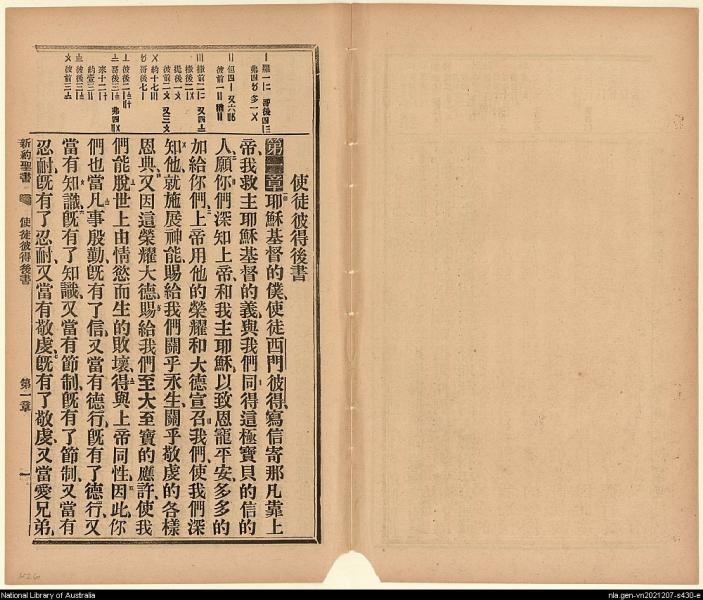 使徒彼得後書
第一章耶穌基督的僕使徒西門彼得寫信寄那凡靠上
帝我救主耶穌基督的義與我們同得這極寶貝的信的
人願你們深知上帝和我主耶穌以致恩寵平安多多的
加給你們上帝用他的榮耀和大德宣召我們使我們深
知他就施展神能賜給我們關乎永生關乎敬虔的各樣
恩典又因這榮耀大德賜給我們至大至寶的應許使我
們能脫世上由情慾而生的敗壞得與上帝同性因此你
們也當凡事殷勤旣有了信又當有德行旣有了德行又
當有知識旣有了知識又當有節制旣有了節制又當有
忍耐旣有了忍耐又當有敬虔旣有了敬虔又當愛兄弟
新約聖書 使徒彼得後書 第一章 一
National Library of Australia
nla.gen-vn2021207-s430-e